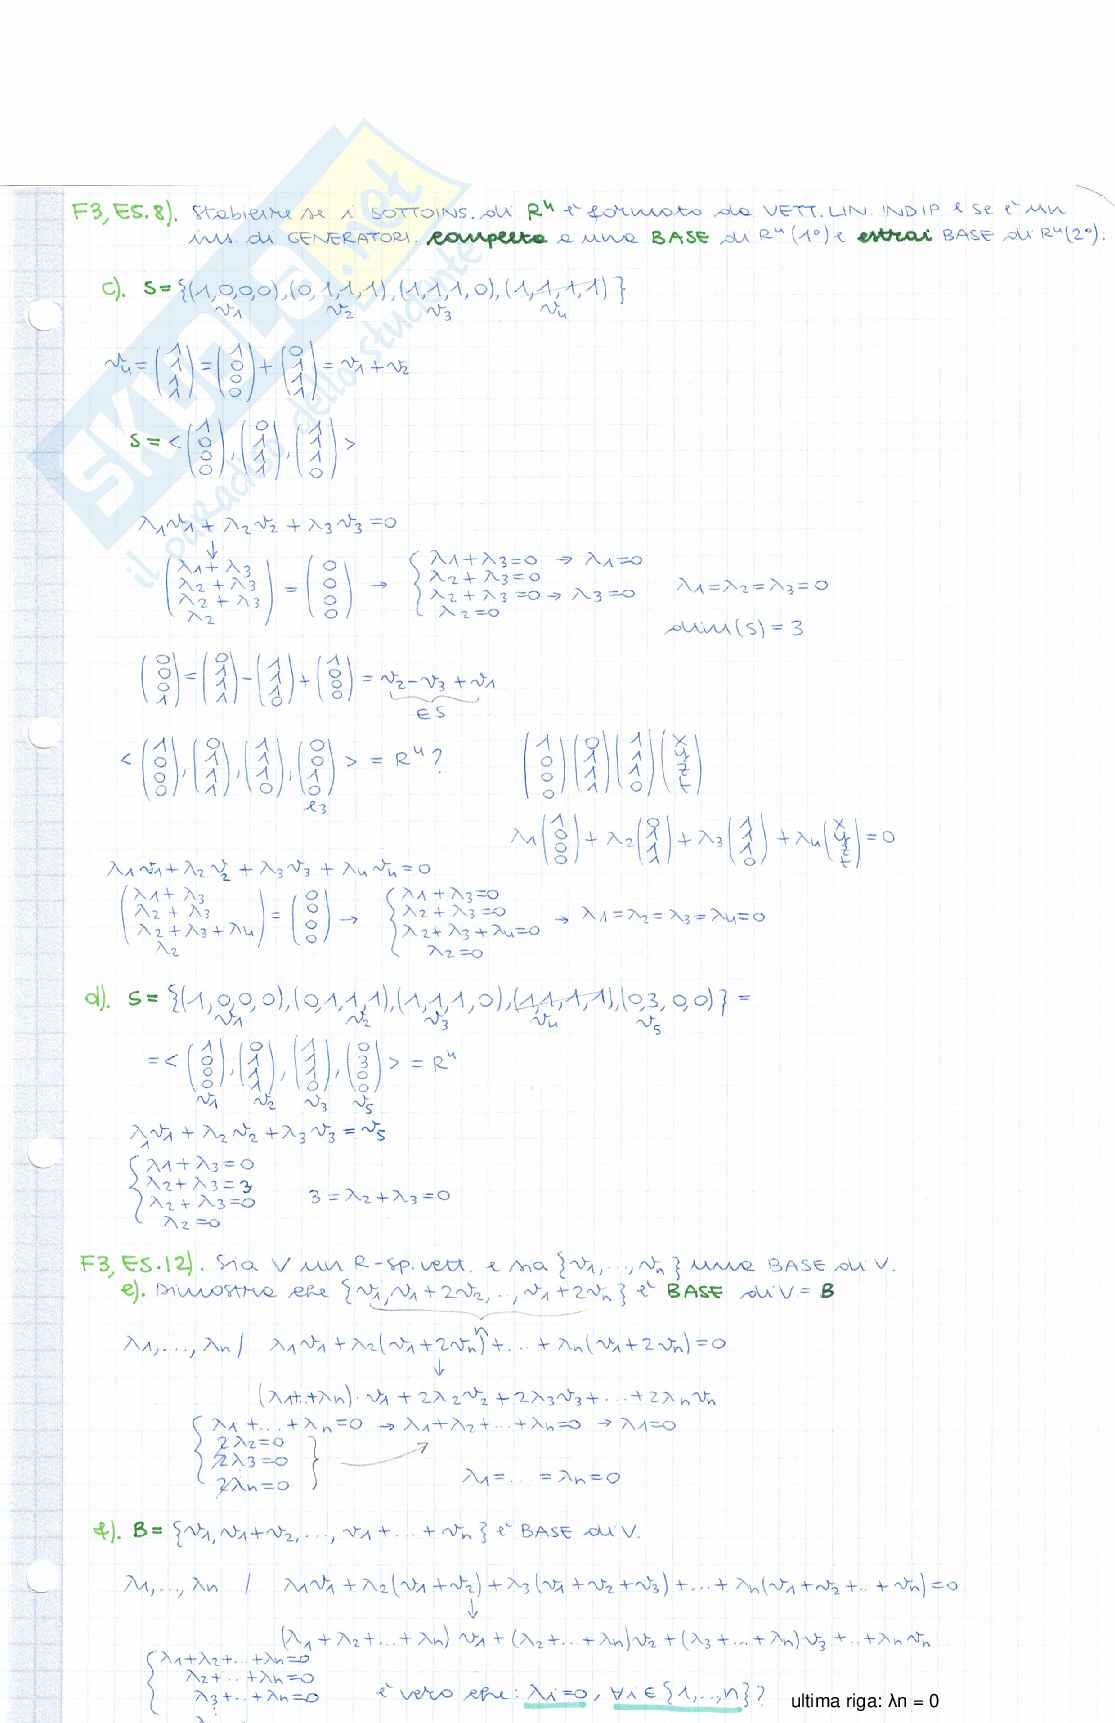 F3, ES.8). Stabilire se i SOTTOINS. di R⁴ è formato da VETT. LIN. INDIP e se è un
ins. di GENERATORI. completa a una BASE di R⁴ (1°) e estrai BASE di R⁴ (2°).
c). S = {(1,0,0,0), (0,1,1,1), (1,1,1,0), (1,1,1,1)}
v1 v2 v3 v4
v4 = (1 1 1 1) = (1 0 0 0) + (0 1 1 1) = v1 + v2
S = < (1 0 0 0), (0 1 1 1), (1 1 1 0) >
λ1v1 + λ2v2 + λ3v3 = 0
↓
(λ1+λ3 λ2+λ3 λ2+λ3 λ2) = (0 0 0 0) →
{ λ1+λ3=0 → λ1=0
λ2+λ3=0
λ2+λ3=0 → λ3=0
λ2=0
λ1=λ2=λ3=0
dim(S) = 3
(0 0 0 1) = (0 1 1 1) - (1 1 1 0) + (1 0 0 0) = v2 - v3 + v1
∈ S
< (1 0 0 0), (0 1 1 1), (1 1 1 0), (0 0 1 0) > = R⁴ ?
e3
(1 0 0 0) (0 1 1 1) (1 1 1 0) (x y z t)
λ1 (1 0 0 0) + λ2 (0 1 1 1) + λ3 (1 1 1 0) + λ4 (x y z t) = 0
λ1v1 + λ2v2 + λ3v3 + λ4v4 = 0
(λ1+λ3 λ2+λ3 λ2+λ3+λ4 λ2) = (0 0 0 0) →
{ λ1+λ3=0
λ2+λ3=0
λ2+λ3+λ4=0
λ2=0
→ λ1=λ2=λ3=λ4=0
d). S = {(1,0,0,0), (0,1,1,1), (1,1,1,0), (1,1,1,1), (0,3,0,0)} =
v1 v2 v3 v4 v5
= < (1 0 0 0), (0 1 1 1), (1 1 1 0), (0 3 0 0) > = R⁴
v1 v2 v3 v5
λ1v1 + λ2v2 + λ3v3 = v5
{ λ1+λ3=0
λ2+λ3=3
λ2+λ3=0
λ2=0
3 = λ2+λ3=0
F3, ES.12). Sia V un R-sp. vett. e sia {v1,..,vn} una BASE di V.
e). Dimostra che {v1, v1+2v2, .., v1+2vn} è BASE di V = B
n
λ1,..., λn / λ1v1 + λ2(v1+2vn) + ... + λn(v1+2vn) = 0
↓
(λ1+..+λn)·v1 + 2λ2v2 + 2λ3v3 + ... + 2λnvn
{ λ1+...+λn=0 → λ1+λ2+...+λn=0 → λ1=0
2λ2=0
2λ3=0
2λn=0
λ1=.. =λn=0
f). B = {v1, v1+v2, ..., v1+...+vn} è BASE di V.
λ1,..., λn / λ1v1 + λ2(v1+v2) + λ3(v1+v2+v3) + ... + λn(v1+v2+..+vn) = 0
↓
(λ1+λ2+...+λn) v1 + (λ2+...+λn) v2 + (λ3+...+λn) v3 + ..+ λnvn
{ λ1+λ2+..+λn=0
λ2+..+λn=0
λ3+..+λn=0
è vero che: λi=0, ∀i∈{1,..,n}?
ultima riga: λn = 0
SKUOLA.net
il paradiso dello studente